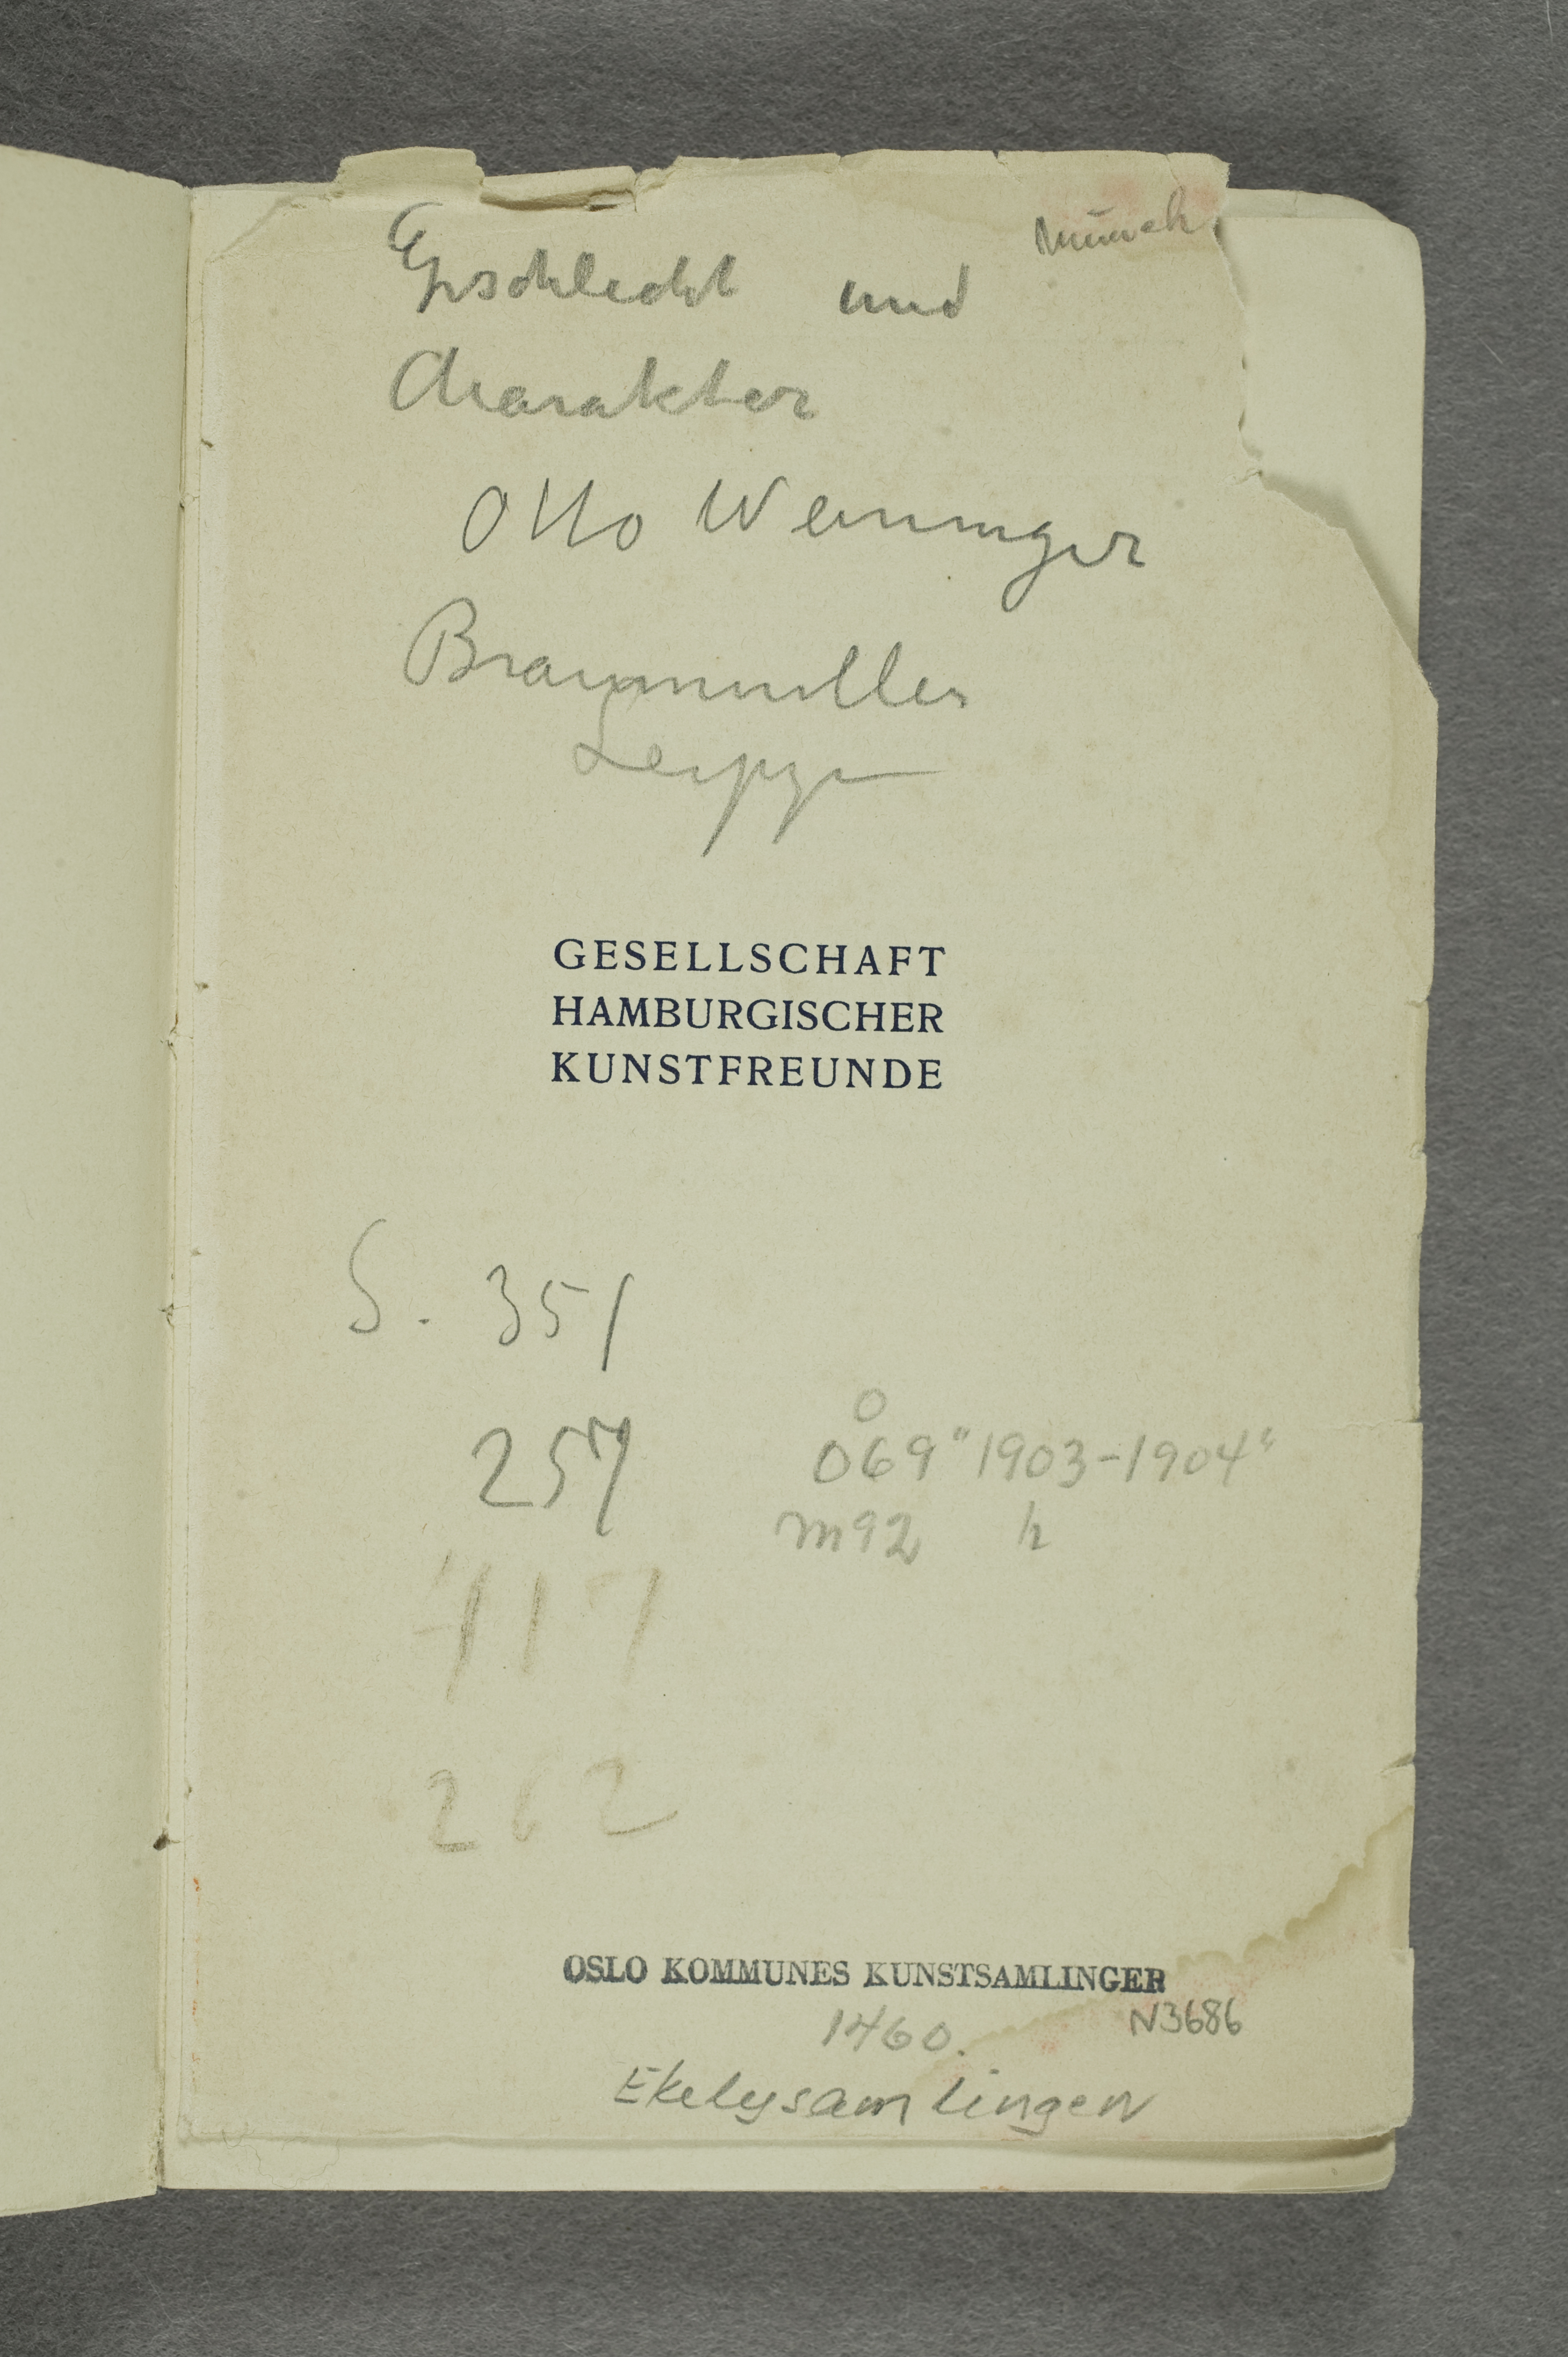 Munch
Geschlecht und
Charakter
Otto Weininger
Braumuller
Leipzi
GESELLSCHAFT
HAMBURGISCHER
KUNSTFREUNDE
S. 351
257
O
069 "1903-1904"
m92 h
417
262
OSLO KOMMUNES KUNSTSAMLINGER
N3686
1460.
Ekelysamlingen